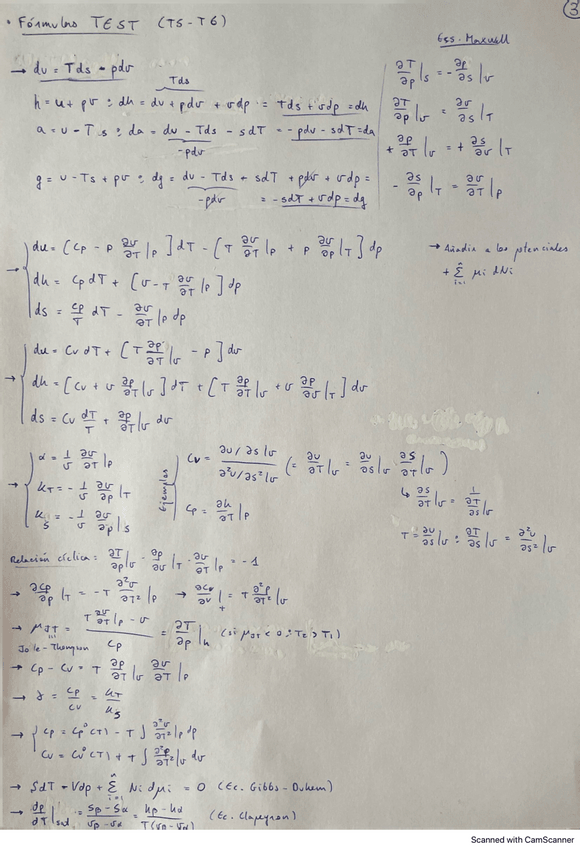 ③
• Fórmulas TEST (T5-T6)
Ess. Maxwell
→ du = Tds - pdv
Tds
h = u + pv : dh = du + pdv + vdp = Tds + vdp = dh
a = u - Ts : da = du - Tds - sdT = -pdv - sdT = da
-pdv
g = u - Ts + pv : dg = du - Tds - sdT + pdv + vdp =
-pdv
= -sdT + vdp = dg
∂T/∂p|s = -∂p/∂s|v
∂T/∂p|v = ∂v/∂s|T
+ ∂p/∂T|v = + ∂s/∂v|T
- ∂s/∂p|T = ∂v/∂T|p
→ { du = [cp - p ∂v/∂T|p] dT - [T ∂v/∂T|p + p ∂v/∂p|T] dp
dh = cp dT + [v - T ∂v/∂T|p] dp
ds = cp/T dT - ∂v/∂T|p dp
→ Añadir a los potenciales
+ Σ i=1 n μi dNi
→ { du = cv dT + [T ∂p/∂T|v - p] dv
dh = [cv + v ∂p/∂T|v] dT + [T ∂p/∂T|v + v ∂p/∂v|v] dv
ds = cv dT/T + ∂p/∂T|v dv
→ { α = 1/v ∂v/∂T|p
κT = - 1/v ∂v/∂p|T
κs = - 1/v ∂v/∂p|s
Ejemplos { cv = ∂u/∂s|v / ∂²u/∂s²|v (= ∂u/∂T|v = ∂u/∂s|v ∂s/∂T|v)
cp = ∂h/∂T|p
↳ ∂s/∂T|v = 1 / ∂T/∂s|v
T = ∂u/∂s|v : ∂T/∂s|v = ∂²u/∂s²|v
Relación cíclica = ∂T/∂p|v · ∂p/∂v|T · ∂v/∂T|p = -1
→ ∂cp/∂p|T = -T ∂²v/∂T²|p → ∂cv/∂v|T = T ∂²p/∂T²|v
→ μJT = T ∂v/∂T|p - v / cp = ∂T/∂p|h (si μJT < 0 : T2 > T1)
Joule-Thomson
→ cp - cv = T ∂p/∂T|v ∂v/∂T|p
→ γ = cp/cv = κT/κs
→ { cp = cp°(T) - T ∫ ∂²v/∂T²|p dp
cv = cv°(T) + T ∫ ∂²p/∂T²|v dv
→ SdT - Vdp + Σ i=1 n Ni dμi = 0 (Ec. Gibbs-Duhem)
→ dp/dT|sat = sβ - sα / vβ - vα = hβ - hα / T(vβ - vα) (Ec. Clapeyron)
Scanned with CamScanner